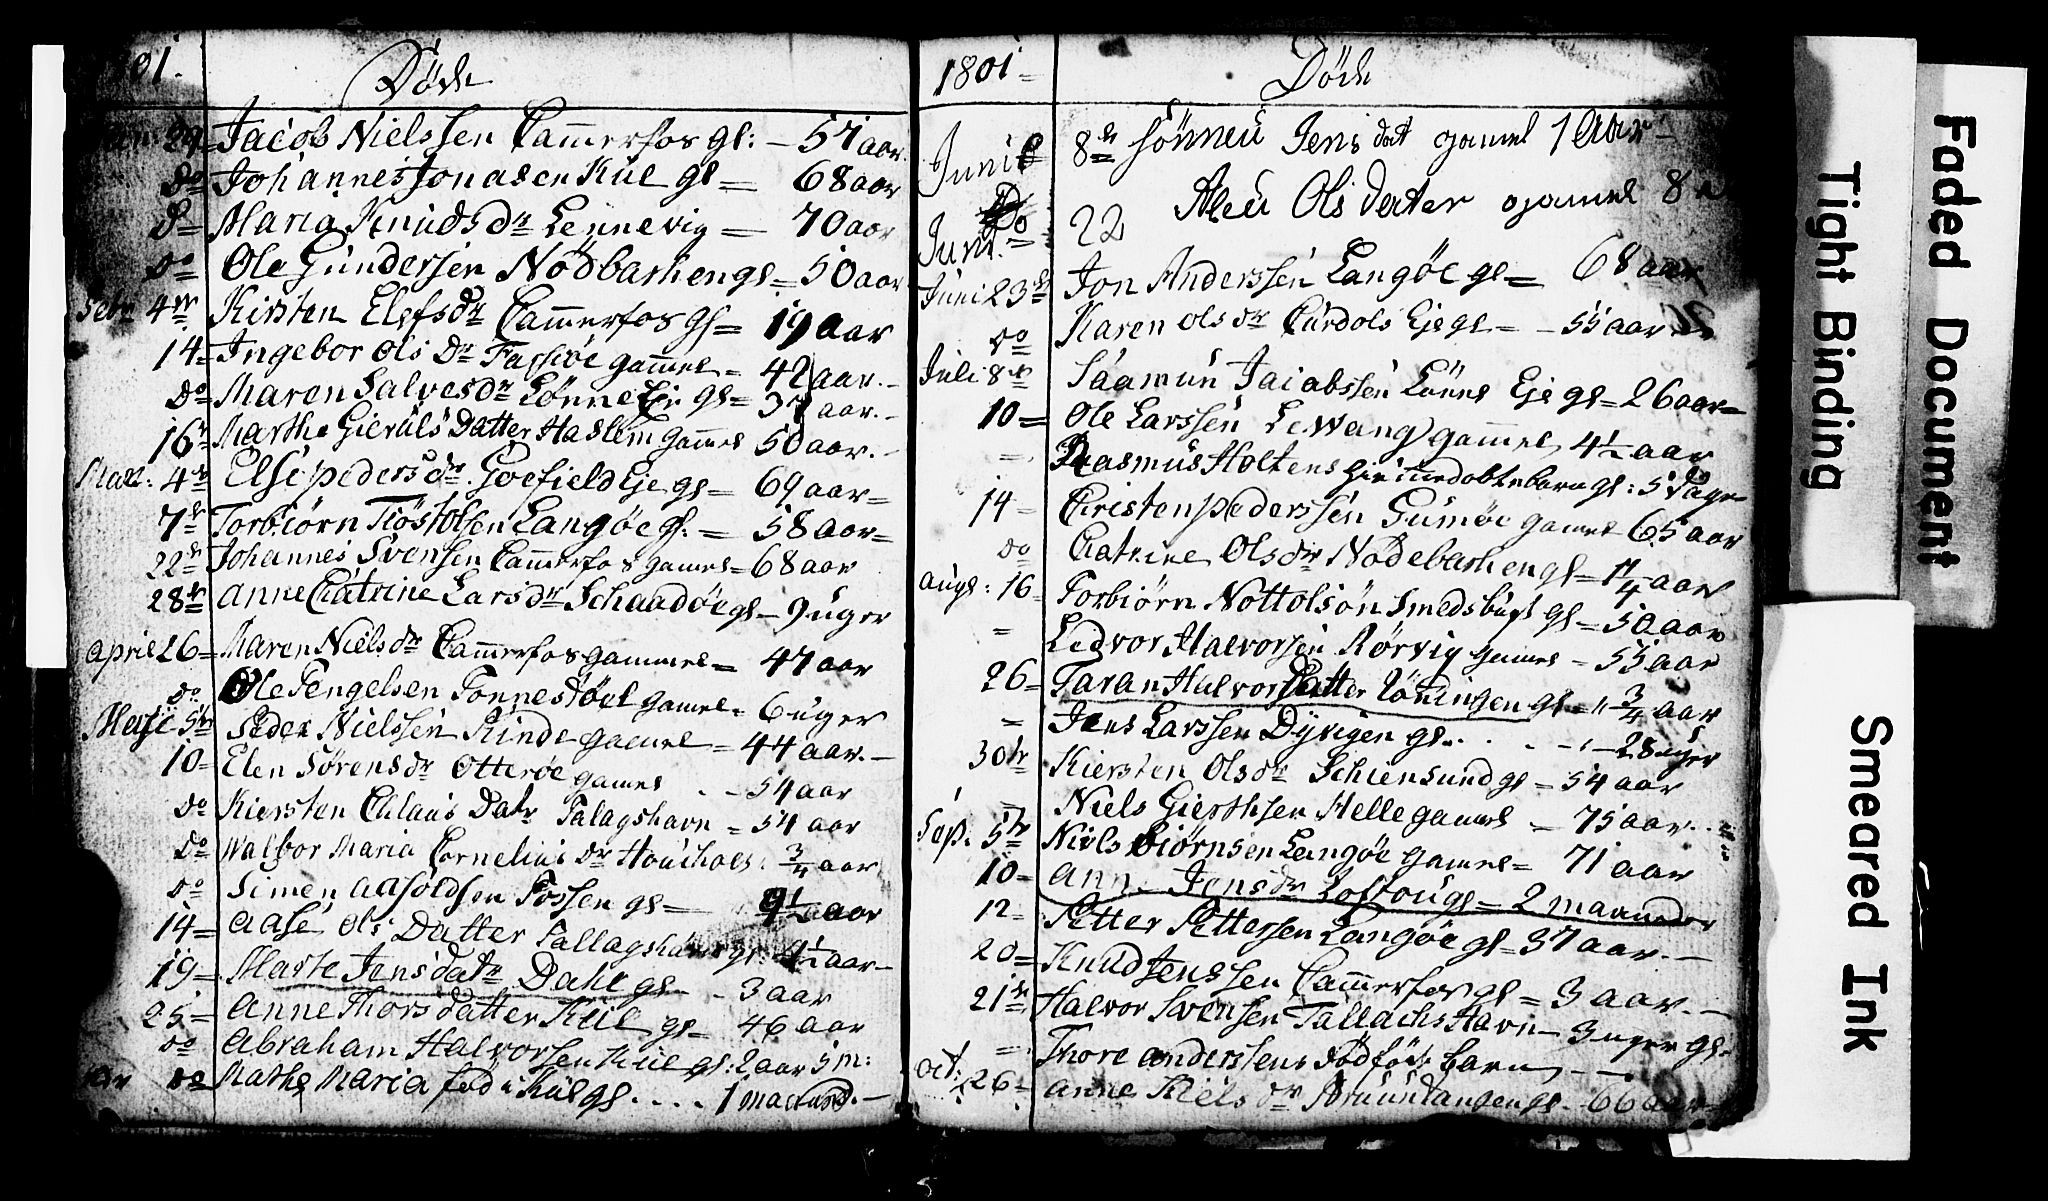 1801.
Døde
Jan: 29= Jacob Nielssen Cammerfos gl: - 57 aar.
do Johannes Jonasen Kiil gl = 68 aar
do Maria Knudsdr Lennevig = 70 aar
do Ole Gundersen Nødbarken gl = 50 aar
Febr 4de Kirsten Elefsdr Cammerfos gl = 19 aar
14= Ingebor Ols Dr Fassøe gammel = 42 aar.-
do Maren Salvesdr Lønne Eje gl = 37 aar.-
16= Marthe Gieruls Datter Haslem gammel 50 aar.-
Mart: 4de Else pedersdr. Goefield Eje gl = 69 aar=
7de Torbiørn Tiøstolsen Langøe gl. = 58 aar=
22de Johannes Svensen Cammerfos gamel = 68 aar
28de Anne Catrine Larsdr Schaadøe gl - 9 uger
April 26= Maren Nielsdr Cammerfos gammel = 47 aar
do Ole Tengelsen Tonnes gamel = 6 uger
Maji 5te Peder Nielssen Kinde gamel = 44 aar.-
10= Elen Sørensdr Otterøe gamel . - 54 aar
do Kiersten Chlaus Datr Talagshavn = 54 aar
do Walbor Maria Cornelius dr Houcholt . 3/4 aar
do Simen Aasøldsen Fossen gl = 9 1/2 aar
14= Aase Ols Datter Tallagshavn gl: 4 1/2 aar-
19= Marte Jensdatr Dahl gl - 3 aar
25= Anne Thorsdatter Kiil gl = 46 aar
do Abraham Halvorssen Kiil gl: 2 aar 5 m:
do Mathe Maria fød i Kiil gl . . . . 1 maaned.-
1801=
Døde
Junii 8de Jens dat gamel 1 Aar-
Do
Juni= 22 Aleu Ols dater gamel 8
Juni 23de Jon Anderssen Langøe gl = 68 aar
do Karen Olsdr Curdols Eje gl = - 55 aar
Juli 8de Saamun Jacobssen Lønne Eje gl = 26 aar=
10= Ole Larssen Lewang gammel 4 1/2 aar
= Rasmus Holtens hiemmedøbte barn gl: 5 dage
14= Christen pederssen Gumøe gamel 65 aar
do Catrine Olsdr Nødebarken gl = 1 1/4 aar
Augs: 16= Torbiørn Nottolsøn Smedsbugt gl = 50 aar
= Ledvor Halvorsen Rørvig gamel = 55 aar
26= Taran Halvorsdatter Løningen gl = 3/4 aar
= Jens Larssen Dyvigen gl . . . - 28 uger
30te Kiersten Olsdr Schiensund gl = 54 aar
= Niels Gierthsen Helle gamel = 75 aar.
Sep. 5te Niels Biørnsen Langøe gamel = 71 aar
10= Ann Jensdr Loftou gl = 2 maaneder
12= Petter Pettersen Langøe gl = 37 aar.-
20= Knud Jenssen Cammerfos gl = 3 aar.-
21de Halvor Svensen Tallachs Havn - 3 uger gl-
= Thore anderssens dødfødt barn - -
Oct: 26= anne Niels dr Bruunlangen gl. 66 aar
Faded Document
Tight Binding
Smeared Ink
5